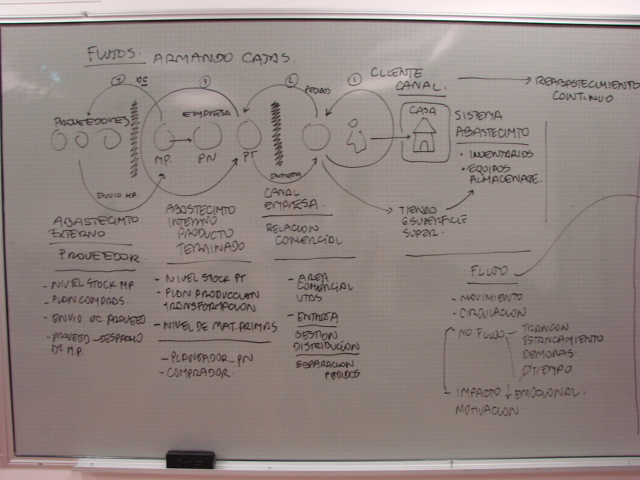 FLUJOS. ARMANDO CAJAS.
④ OC
③
②
PEDIDOS
①
CLIENTE
CANAL
REABASTECIMIENTO
CONTINUO
PROVEEDORES
EMPRESA
CASA
SISTEMA
ABASTECIMTO
• INVENTARIOS
• EQUIPOS
ALMACENAJE.
MP.
PN
PT
ENVIO MP.
ENTREGA
TIENDA
SUPERFICIE
SUPER.
ABASTECIMTO
EXTERNO
PROVEEDOR.
- NIVEL STOCK MP
- PLAN COMPRAS
- ENVIO OC PROVEED
- PROVEED - DESPACHO
DE M.P.
ABASTECIMTO
INTERNO
PRODUCTO
TERMINADO
- NIVEL STOCK PT
- PLAN PRODUCCION
TRANSFORMACION
- NIVEL DE MAT. PRIMAS
- PLANEADOR PN
- COMPRADOR.
CANAL
EMPRESA.
RELACION
COMERCIAL
- AREA
COMERCIAL
VTAS
- ENTREGA
GESTION
DISTRIBUCION
SEPARACION
PEDIDOS
FLUJO
- MOVIMIENTO
- CIRCULACION
NO FLUJO - TRANCON
ESTANCAMIENTO
DEMORAS
TIEMPO
- IMPACTO ↓ EMOCIONAL.
MOTIVACION.